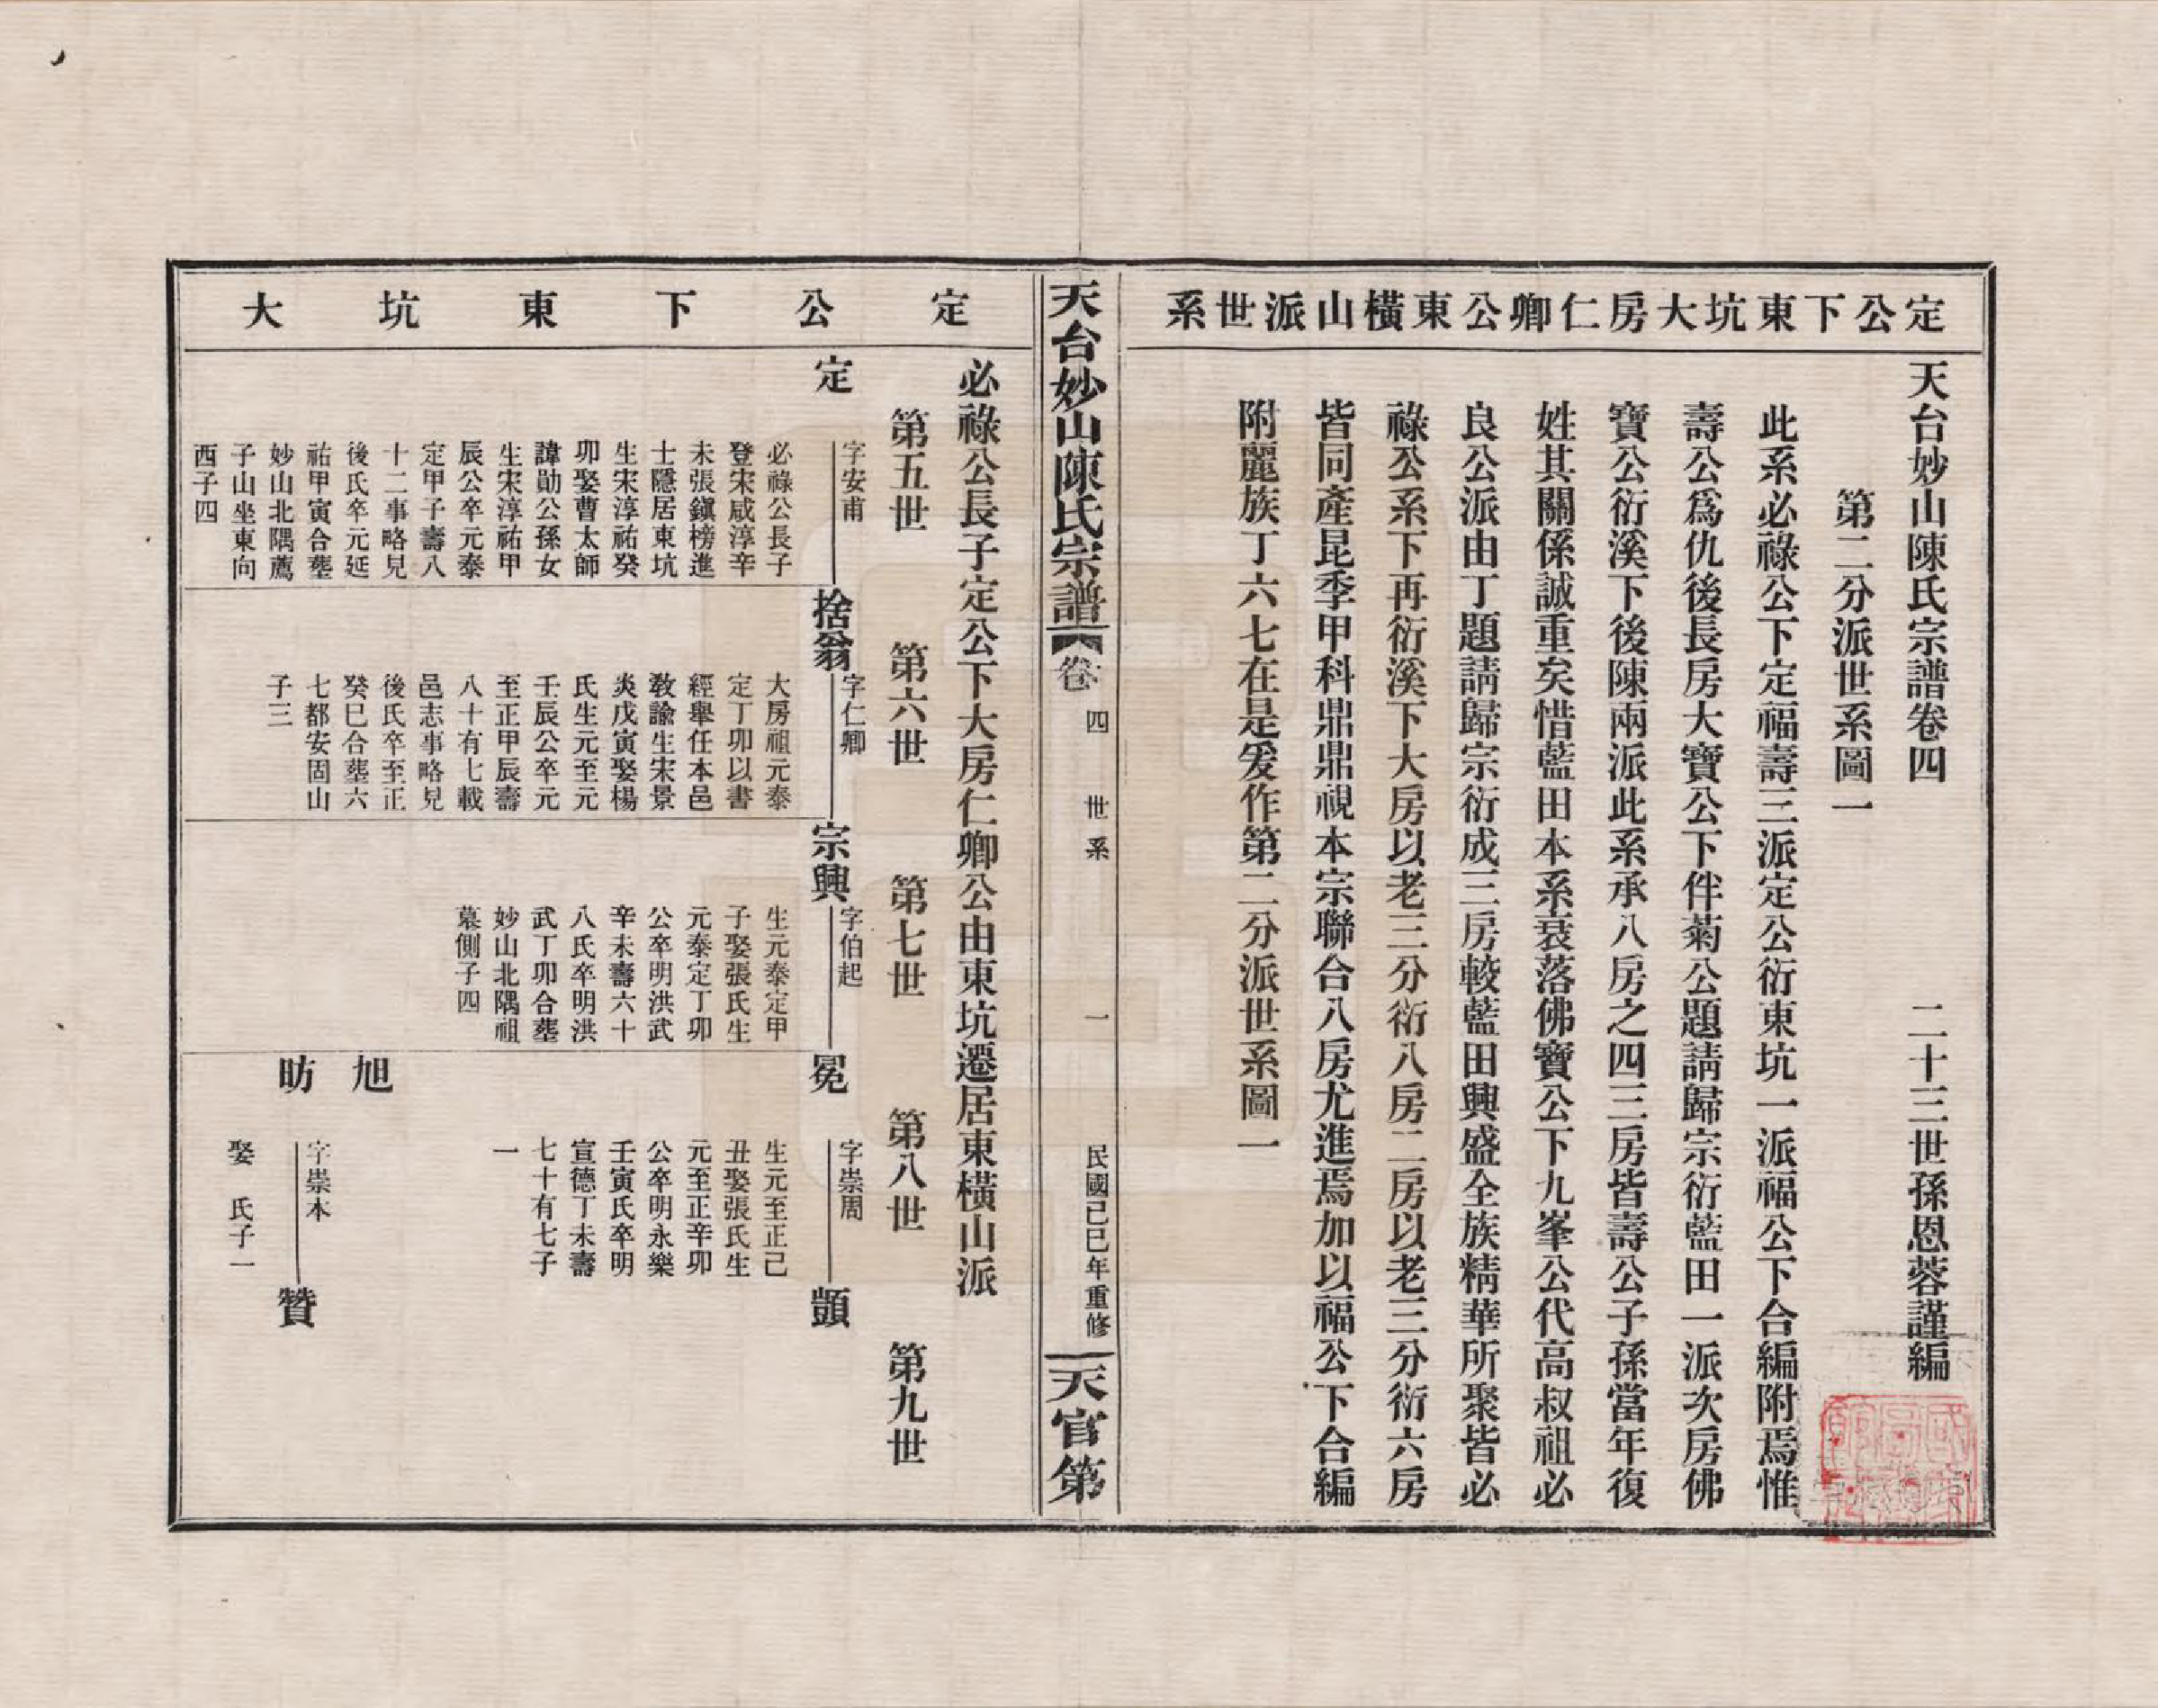 定公下東坑大房仁卿公東橫山派世系
天台妙山陳氏宗譜卷四　二十三世孫恩蓉謹編
第二分派世系圖一
此系必祿公下定福壽三派定公衍東坑一派福公下合編附焉惟
壽公爲仇後長房大寶公下伴菊公題請歸宗衍藍田一派次房佛
寶公衍溪下後陳兩派此系承八房之四三房皆壽公子孫當年復
姓其關係誠重矣惜藍田本系衰落佛寶公下九峯公代高叔祖必
良公派由丁題請歸宗衍成三房較藍田興盛全族精華所聚皆必
祿公系下再衍溪下大房以老三分衍八房二房以老三分衍六房
皆同產昆季甲科鼎鼎視本宗聯合八房尤進焉加以福公下合編
附麗族丁六七在是爰作第二分派世系圖一
天台妙山陳氏宗譜
卷四　世系　一
民國己巳年重修
天官第
定公下東坑大
必祿公長子定公下大房仁卿公由東坑遷居東橫山派
第五世　第六世　第七世　第八世　第九世
定
字安甫
必祿公長子
登宋咸淳辛
未張鎭榜進
士隱居東坑
生宋淳祐癸
卯娶曹太師
諱勛公孫女
生宋淳祐甲
辰公卒元泰
定甲子壽八
十二事略見
後氏卒元延
祐甲寅合塟
妙山北隅薦
子山坐東向
西子四
捨翁
字仁卿
大房祖元泰
定丁卯以書
經舉任本邑
敎諭生宋景
炎戊寅娶楊
氏生元至元
壬辰公卒元
至正甲辰壽
八十有七載
邑志事略見
後氏卒至正
癸巳合塟六
七都安固山
子三
宗興
字伯起
生元泰定甲
子娶張氏生
元泰定丁卯
公卒明洪武
辛未壽六十
八氏卒明洪
武丁卯合塟
妙山北隅祖
墓側子四
冕
字崇周
生元至正己
丑娶張氏生
元至正辛卯
公卒明永樂
壬寅氏卒明
宣德丁未壽
七十有七子
一
顗
旭
昉
字崇本
娶　氏子一
贊